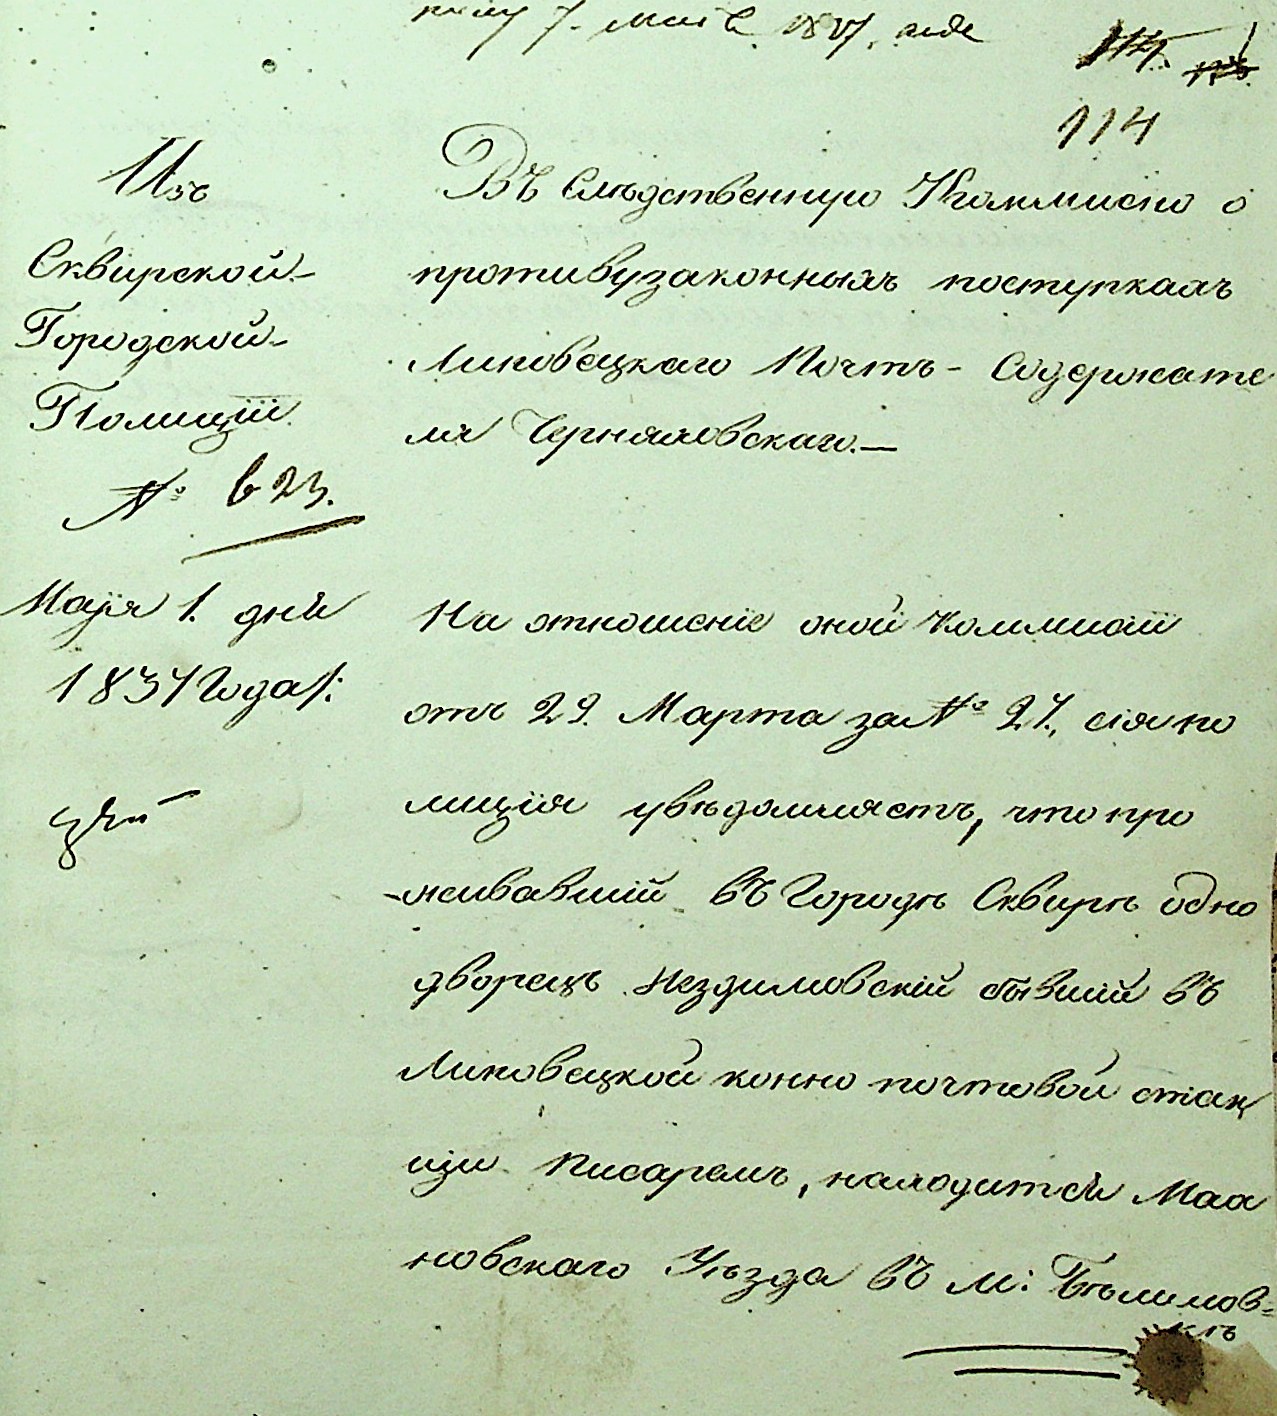 7. Мая 1837. года
114
Изъ
Сквирской
Городской
Полиціи
№ 623.
Маія 1. дня
1837 Года
Въ Слѣдственную Коммисію о
противузаконныхъ поступкахъ
Липовецкаго Почтъ-Содержате
ля Черняховскаго.—
На отношеніе оной Коммисіи
отъ 29. Марта за № 27., сія по
лиція увѣдомляетъ, что про
живавшій въ Городѣ Сквирѣ одно
дворецъ Нездимовскій бывшій въ
Липовецкой конно почтовой стан
ціи писаремъ, находится Мах
новскаго Уѣзда въ м: Бѣлиловкѣ